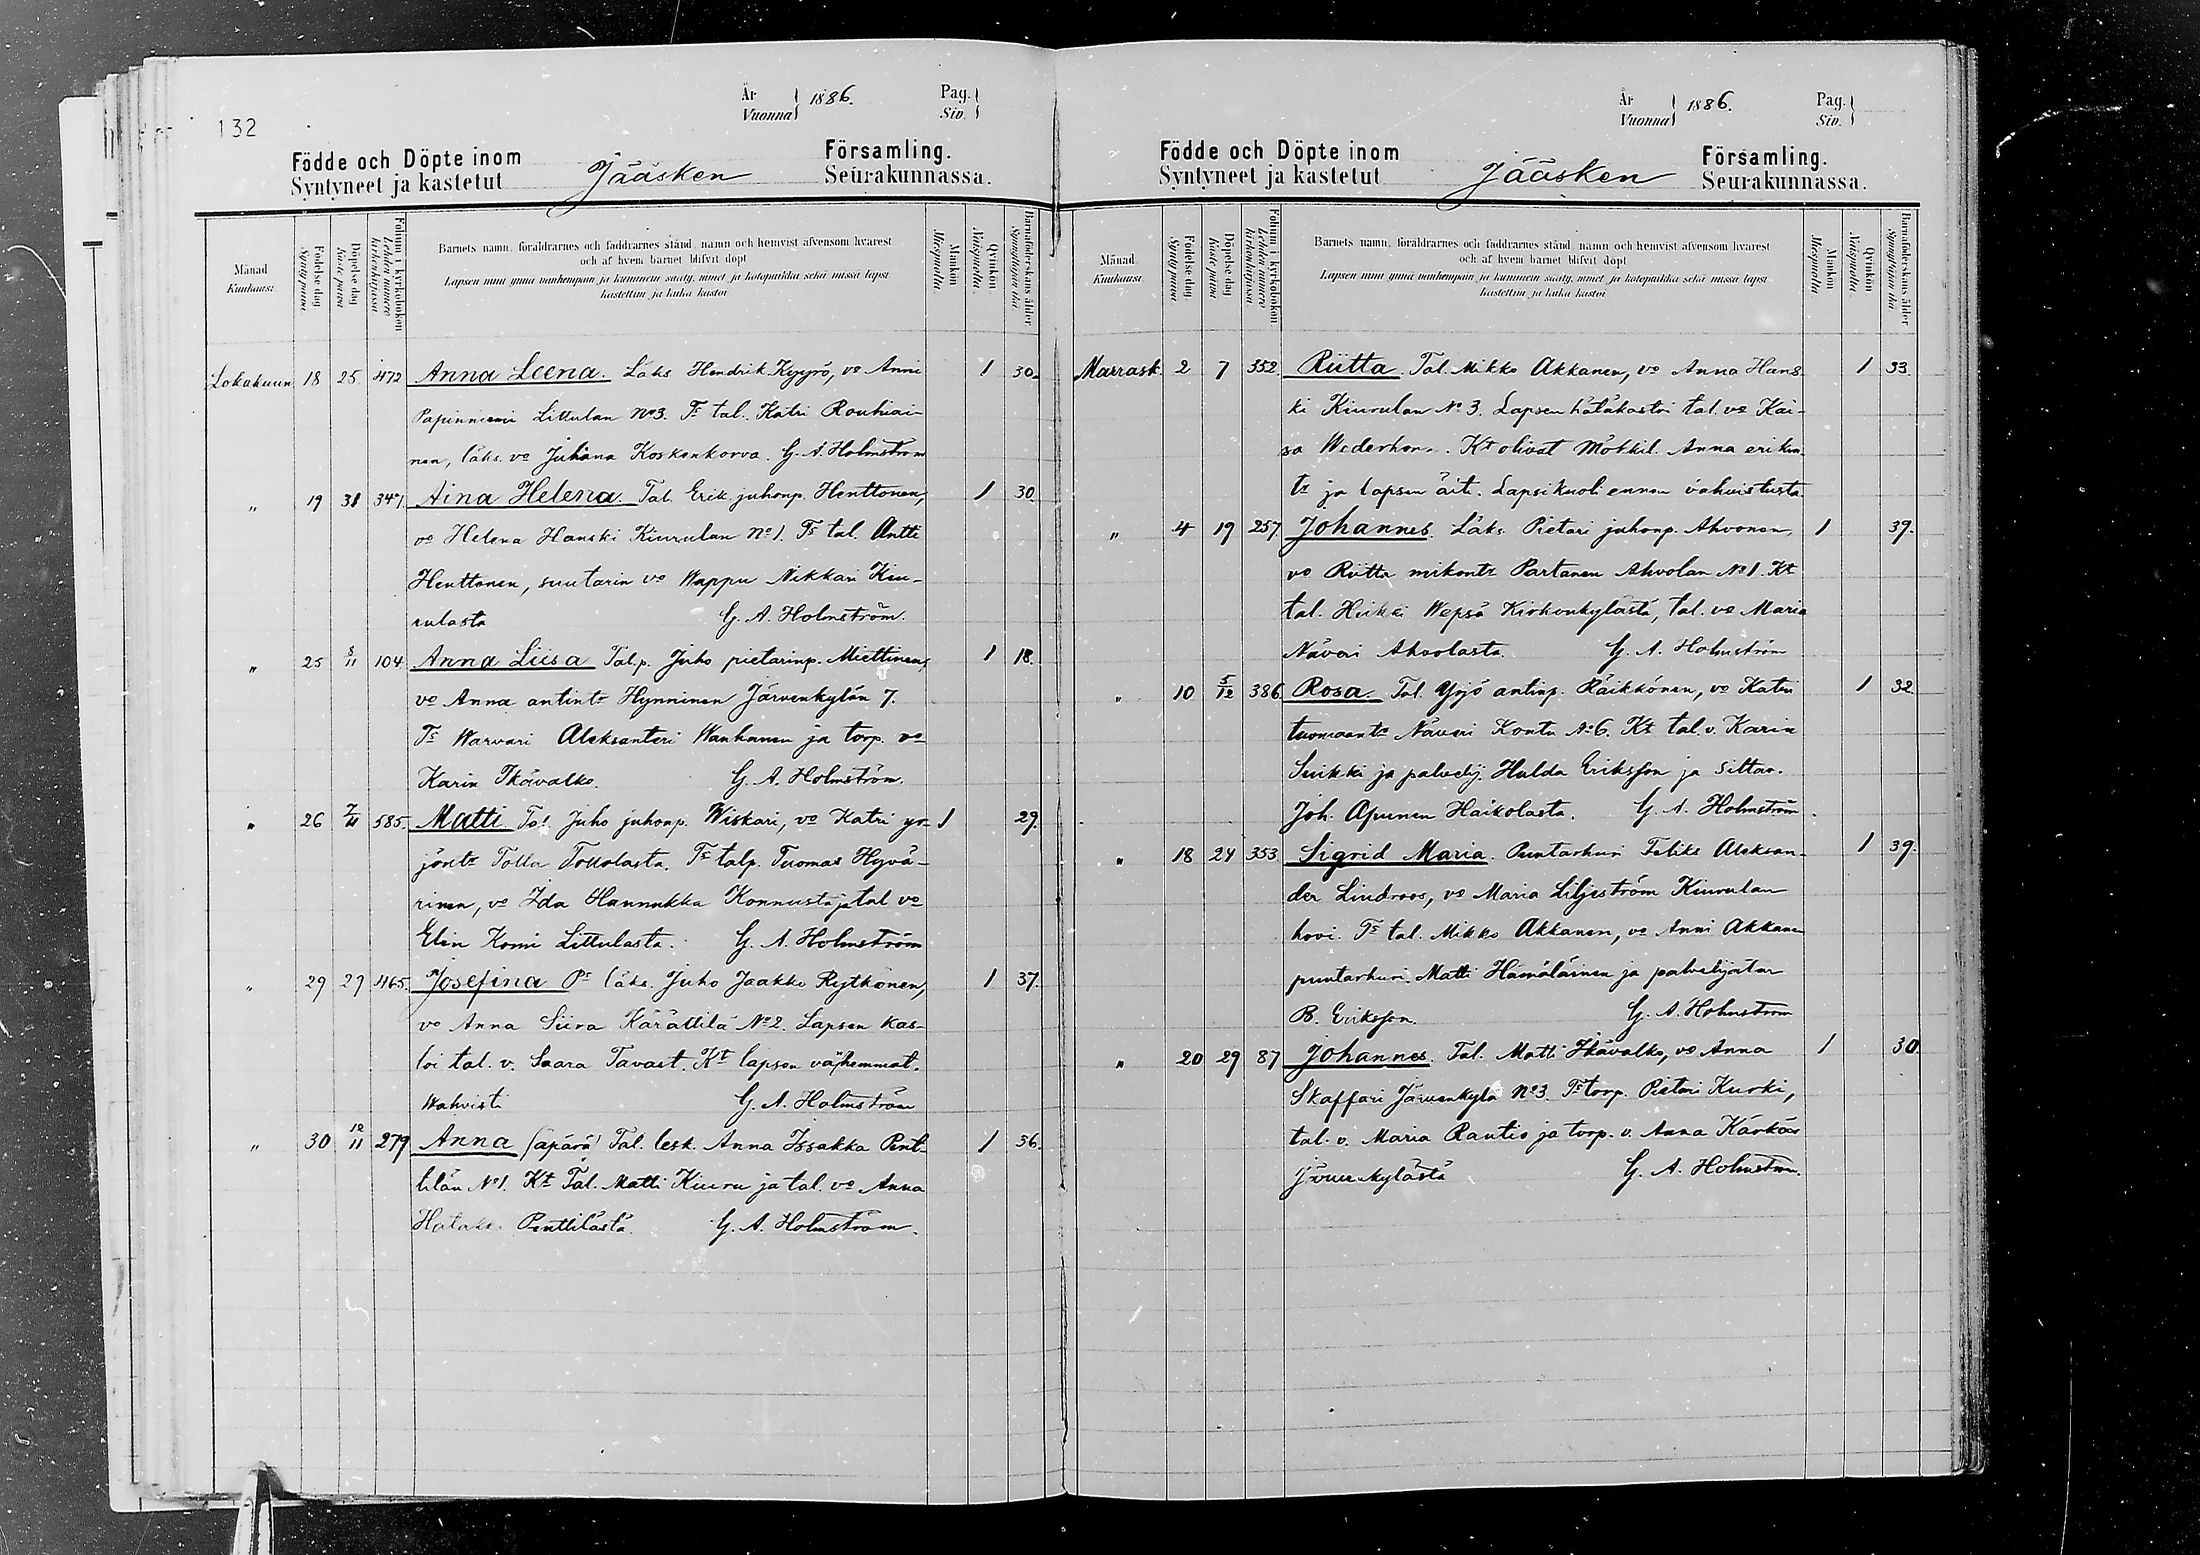 132
År
Vuonna
1886.
Pag.
Siv.
Födde och Döpte inom
Syntyneet ja kastetut
Jääsken
Församling.
Seurakunnassa.
Månad
Kuukausi
Födelsedag
Syntypäivä
Döpelsedag
Kastepäivä
Folium i kyrkoboken
Lehden numero kirkonkirjassa
Barnets namn, föräldrarnes och faddrarnes stånd, namn och hemvist äfvensom hvarest
och af hvem barnet blifvit döpt
Lapsen nimi ynnä vanhempain ja kummein sääty, nimet ja kotopaikka sekä missä lapsi
kastettiin ja kuka kastoi
Mankön
Miespuolia
Qvinkön
Naispuolia
Barnaföderskans ålder
Synnyttäjän ikä
Lokakuun 18 25 472 Anna Leena. Läks Hendrik Kyyrö, vo Anni 1 30.
Papinniemi Littulan No3. Ts tal. Katri Rouhiai-
nen, läks. vo Juhana Koskenkorva. G. A. Holmström
" 19 31 347. Aina Helena. Tal. Erik juhonp. Henttonen, 1 30.
vo Helena Hanski Kiurulan No1. Ts tal. Antti
Henttonen, suutarin vo Wappu Nikkari Kiu-
rulasta G. A. Holmström.
" 25 8/11 104 Anna Liisa Tal.p. Juho pietarinp. Miettinen, 1 18.
vo Anna antintr Hynninen Järvenkylän 7.
Ts Warvari Aleksanteri Wanhanen ja torp. vo
Karin Ikävalko. G. A. Holmström.
" 26 7/11 585. Matti Tal. Juho juhonp. Wiskari, vo Katri yr- 1 29.
jöntr Tolla Tollolasta. Ts talp. Tuomas Hyvä-
rinen, vo Ida Hannukka Konnusta ja tal vo
Elin Komi Littulasta. G. A. Holmström
" 29 29 465. Josefina Ps läks. Juho Jaakko Rytkönen, 1 37.
vo Anna Siira Kärättilä No2. Lapsen kas-
toi tal. v. Saara Tavast. Kt lapsen vanhemmat.
Wahvisti G. A. Holmström
" 30 12/11 279 Anna (äpärä) Tal. lesk. Anna Issakka Pent- 1 36.
tilän No1. Kt Tal. Matti Kiuru ja tal. vo Anna
Penttilästä. G. A. Holmström.
År
Vuonna
1886.
Pag.
Siv.
Födde och Döpte inom
Syntyneet ja kastetut
Jääsken
Församling.
Seurakunnassa.
Månad
Kuukausi
Födelsedag
Syntypäivä
Döpelsedag
Kastepäivä
Folium i kyrkoboken
Lehden numero kirkonkirjassa
Barnets namn, föräldrarnes och faddrarnes stånd, namn och hemvist äfvensom hvarest
och af hvem barnet blifvit döpt
Lapsen nimi ynnä vanhempain ja kummein sääty, nimet ja kotopaikka sekä missä lapsi
kastettiin ja kuka kastoi
Mankön
Miespuolia
Qvinkön
Naispuolia
Barnaföderskans ålder
Synnyttäjän ikä
Marrask. 2 7 352 Riitta. Tal. Mikko Akkanen, vo Anna Hans- 1 33.
ki Kiurulan No 3. Lapsen hätäkastoi tal. vo Kai-
sa Kt olivat Mökkil. Anna erikin-
tr ja lapsen äiti. Lapsi kuoli ennen vahvistusta
" 4 19 257. Johannes. Läks. Pietari juhonp. Ahvonen, 1 39.
vo Riitta mikontr Partanen Ahvolan No1. Kt
tal. Heikki Wepsä Kirkonkylästä, tal. vo Maria
Näveri Ahvolasta. G. A. Holmström
" 10 5/12 386 Rosa. Tal Yrjö antinp. Räikkönen, vo Katri 1 32
tuomaantr Näveri Kontu No6. Kt tal. v. Karin
Suikki ja palvelij. Hulda Eriksson ja Siltav.
Joh. Apunen Haikolasta. G. A. Holmström.
" 18 24 353 Sigrid Maria. Puutarhuri Feliks Aleksan- 1 39.
der Lindroos, vo Maria Liljeström Kiurulan
hovi. Ts tal. Mikko Akkanen, vo Anni Akkanen
puutarhuri. Matti Hämäläinen ja palvelijatar
B. Eriksson. G. A. Holmström
" 20 29 87 Johannes. Tal. Matti Ikävalko, vo Anna 1 30.
Skaffari Järvenkylä No3. Ts torp. Pietari Kurki,
tal. v. Maria Rautio ja torp. v. Anna Kärkäs
Järvenkylästä G. A. Holmström.